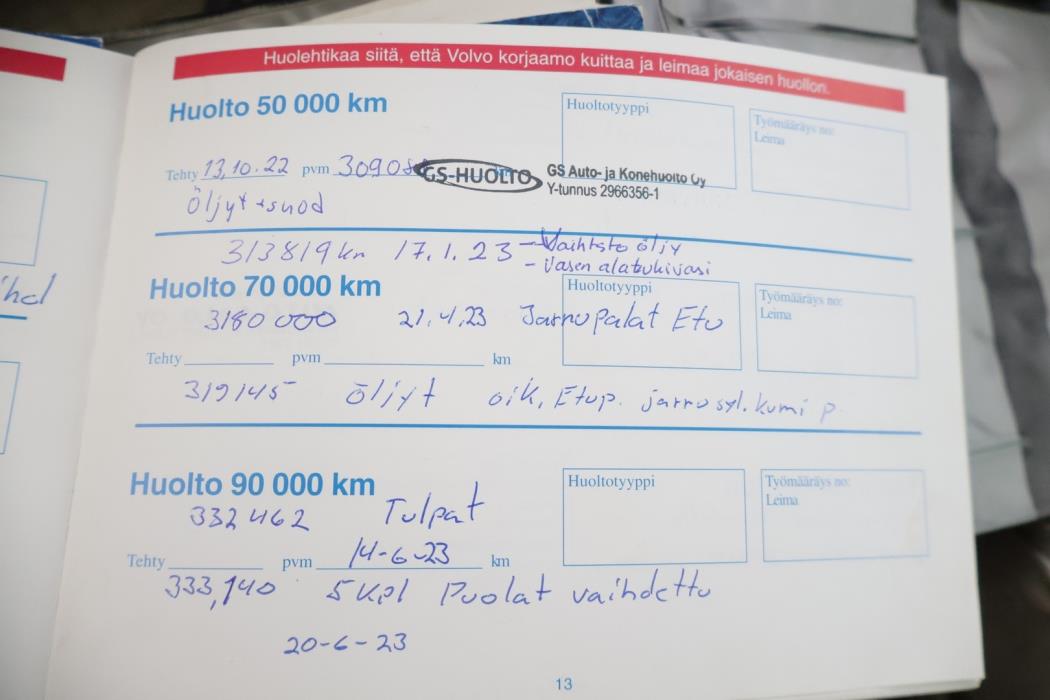 Huolehtikaa siitä, että Volvo korjaamo kuittaa ja leimaa jokaisen huollon.
Huolto 50 000 km
Huoltotyyppi
Työmääräys no:
Leima
Tehty 13,10.22 pvm 30908
GS-HUOLTO
GS Auto- ja Konehuolto Oy
Y-tunnus 2966356-1
Öljyt + suod
313819 km 17.1.23 - Vaihtsto öljy
- Vasen alatukivasi
Huolto 70 000 km
Huoltotyyppi
Työmääräys no:
Leima
3180 000 21.4.23 Jarrupalat Etu
Tehty pvm km
319145 öljyt oik, Etup. jarrusyl. kumi p
Huolto 90 000 km
Huoltotyyppi
Työmääräys no:
Leima
332462 Tulpat
Tehty pvm 14-6-23 km
333,140 5 kpl Puolat vaihdettu
20-6-23
13